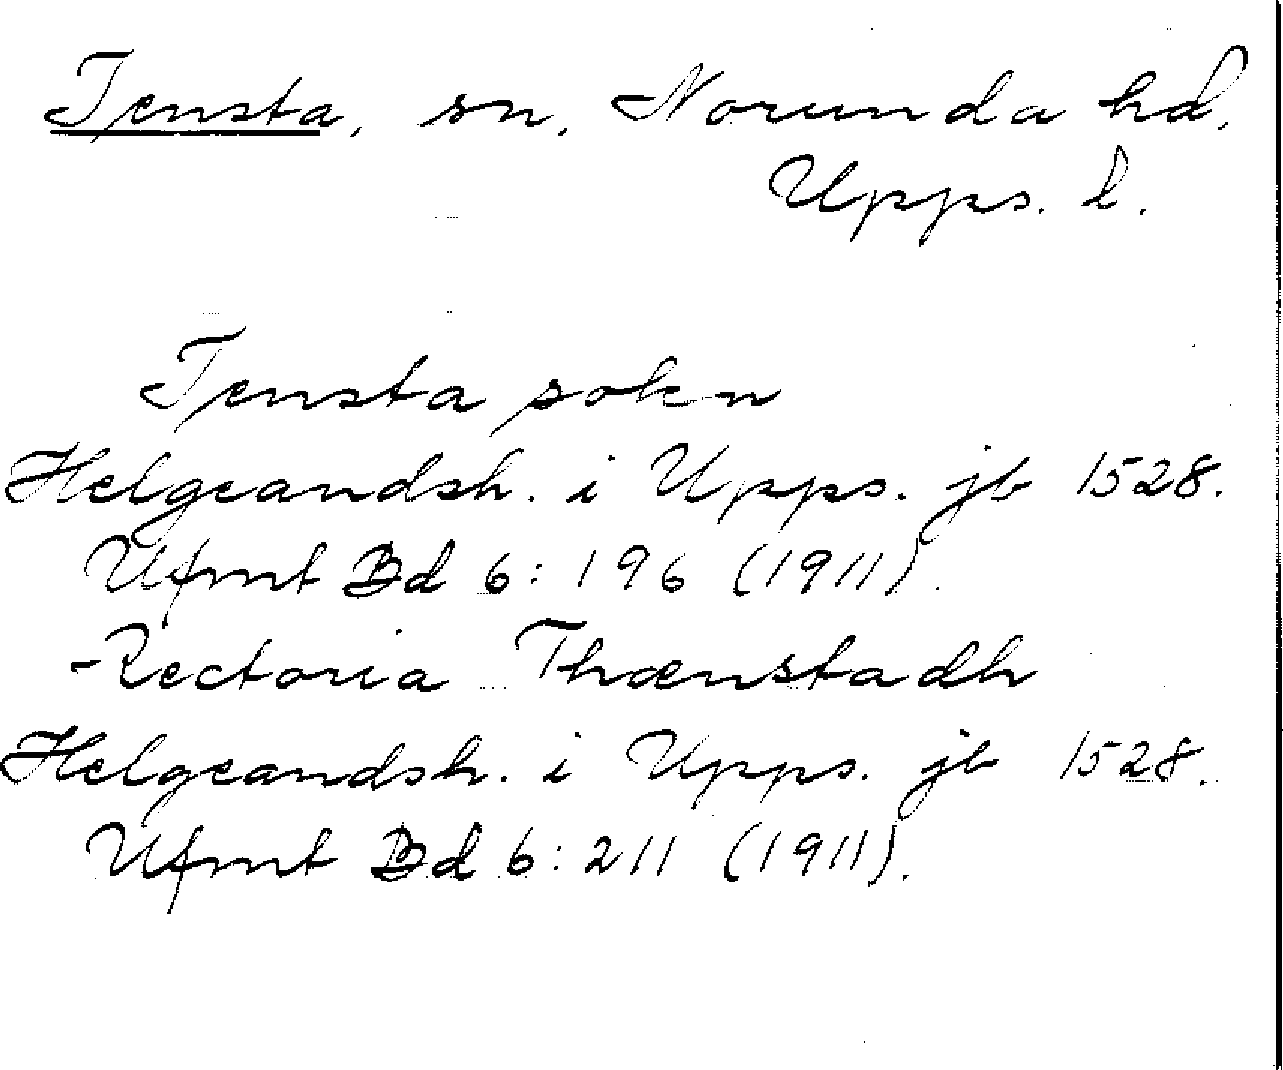 Tensta, sn, Norunda hd,
Upps. l.
Tensta sokn
Helgeandsh. i Upps. jb 1528.
Ufmt Bd 6: 196 (1911).
-Rectoria Thænstadh
Helgeandsh. i Upps. jb 1528.
Ufmt Bd 6: 211 (1911).